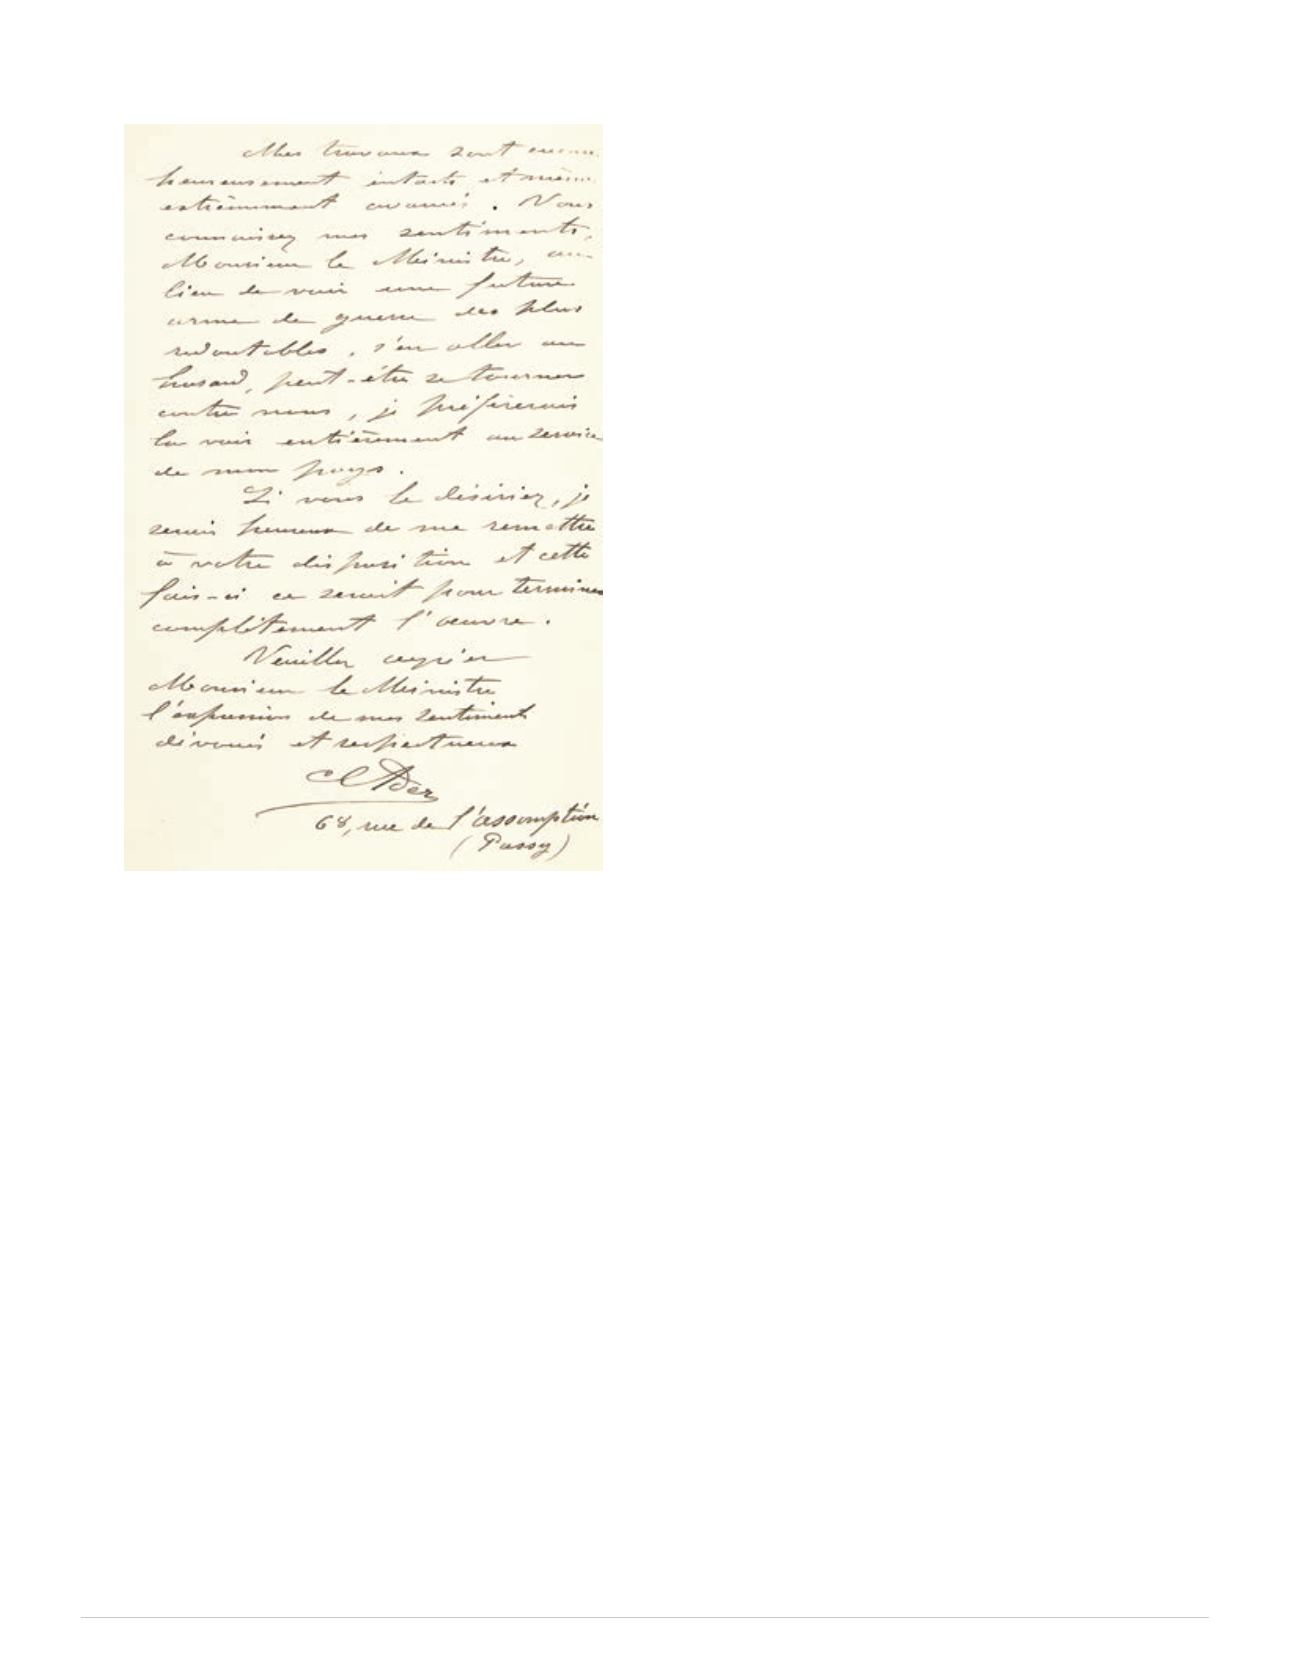 Mes travaux sont encore
heureusement intacts et même
extrêmement avancés. Vous
connaissez mes sentiments,
Monsieur le Ministre, au
lieu de voir une future
arme de guerre des plus
redoutables, s'en aller au
hasard, peut-être se tourner
contre nous, je préférerais
la voir entièrement au service
de mon pays.
Si vous le désiriez, je
serais heureux de me remettre
à votre disposition et cette
fois-ci ce serait pour terminer
complètement l'œuvre.
Veuillez agréer
Monsieur le Ministre
l'expression de mes sentiments
dévoués et respectueux
C Ader
68, rue de l'assomption
(Passy)